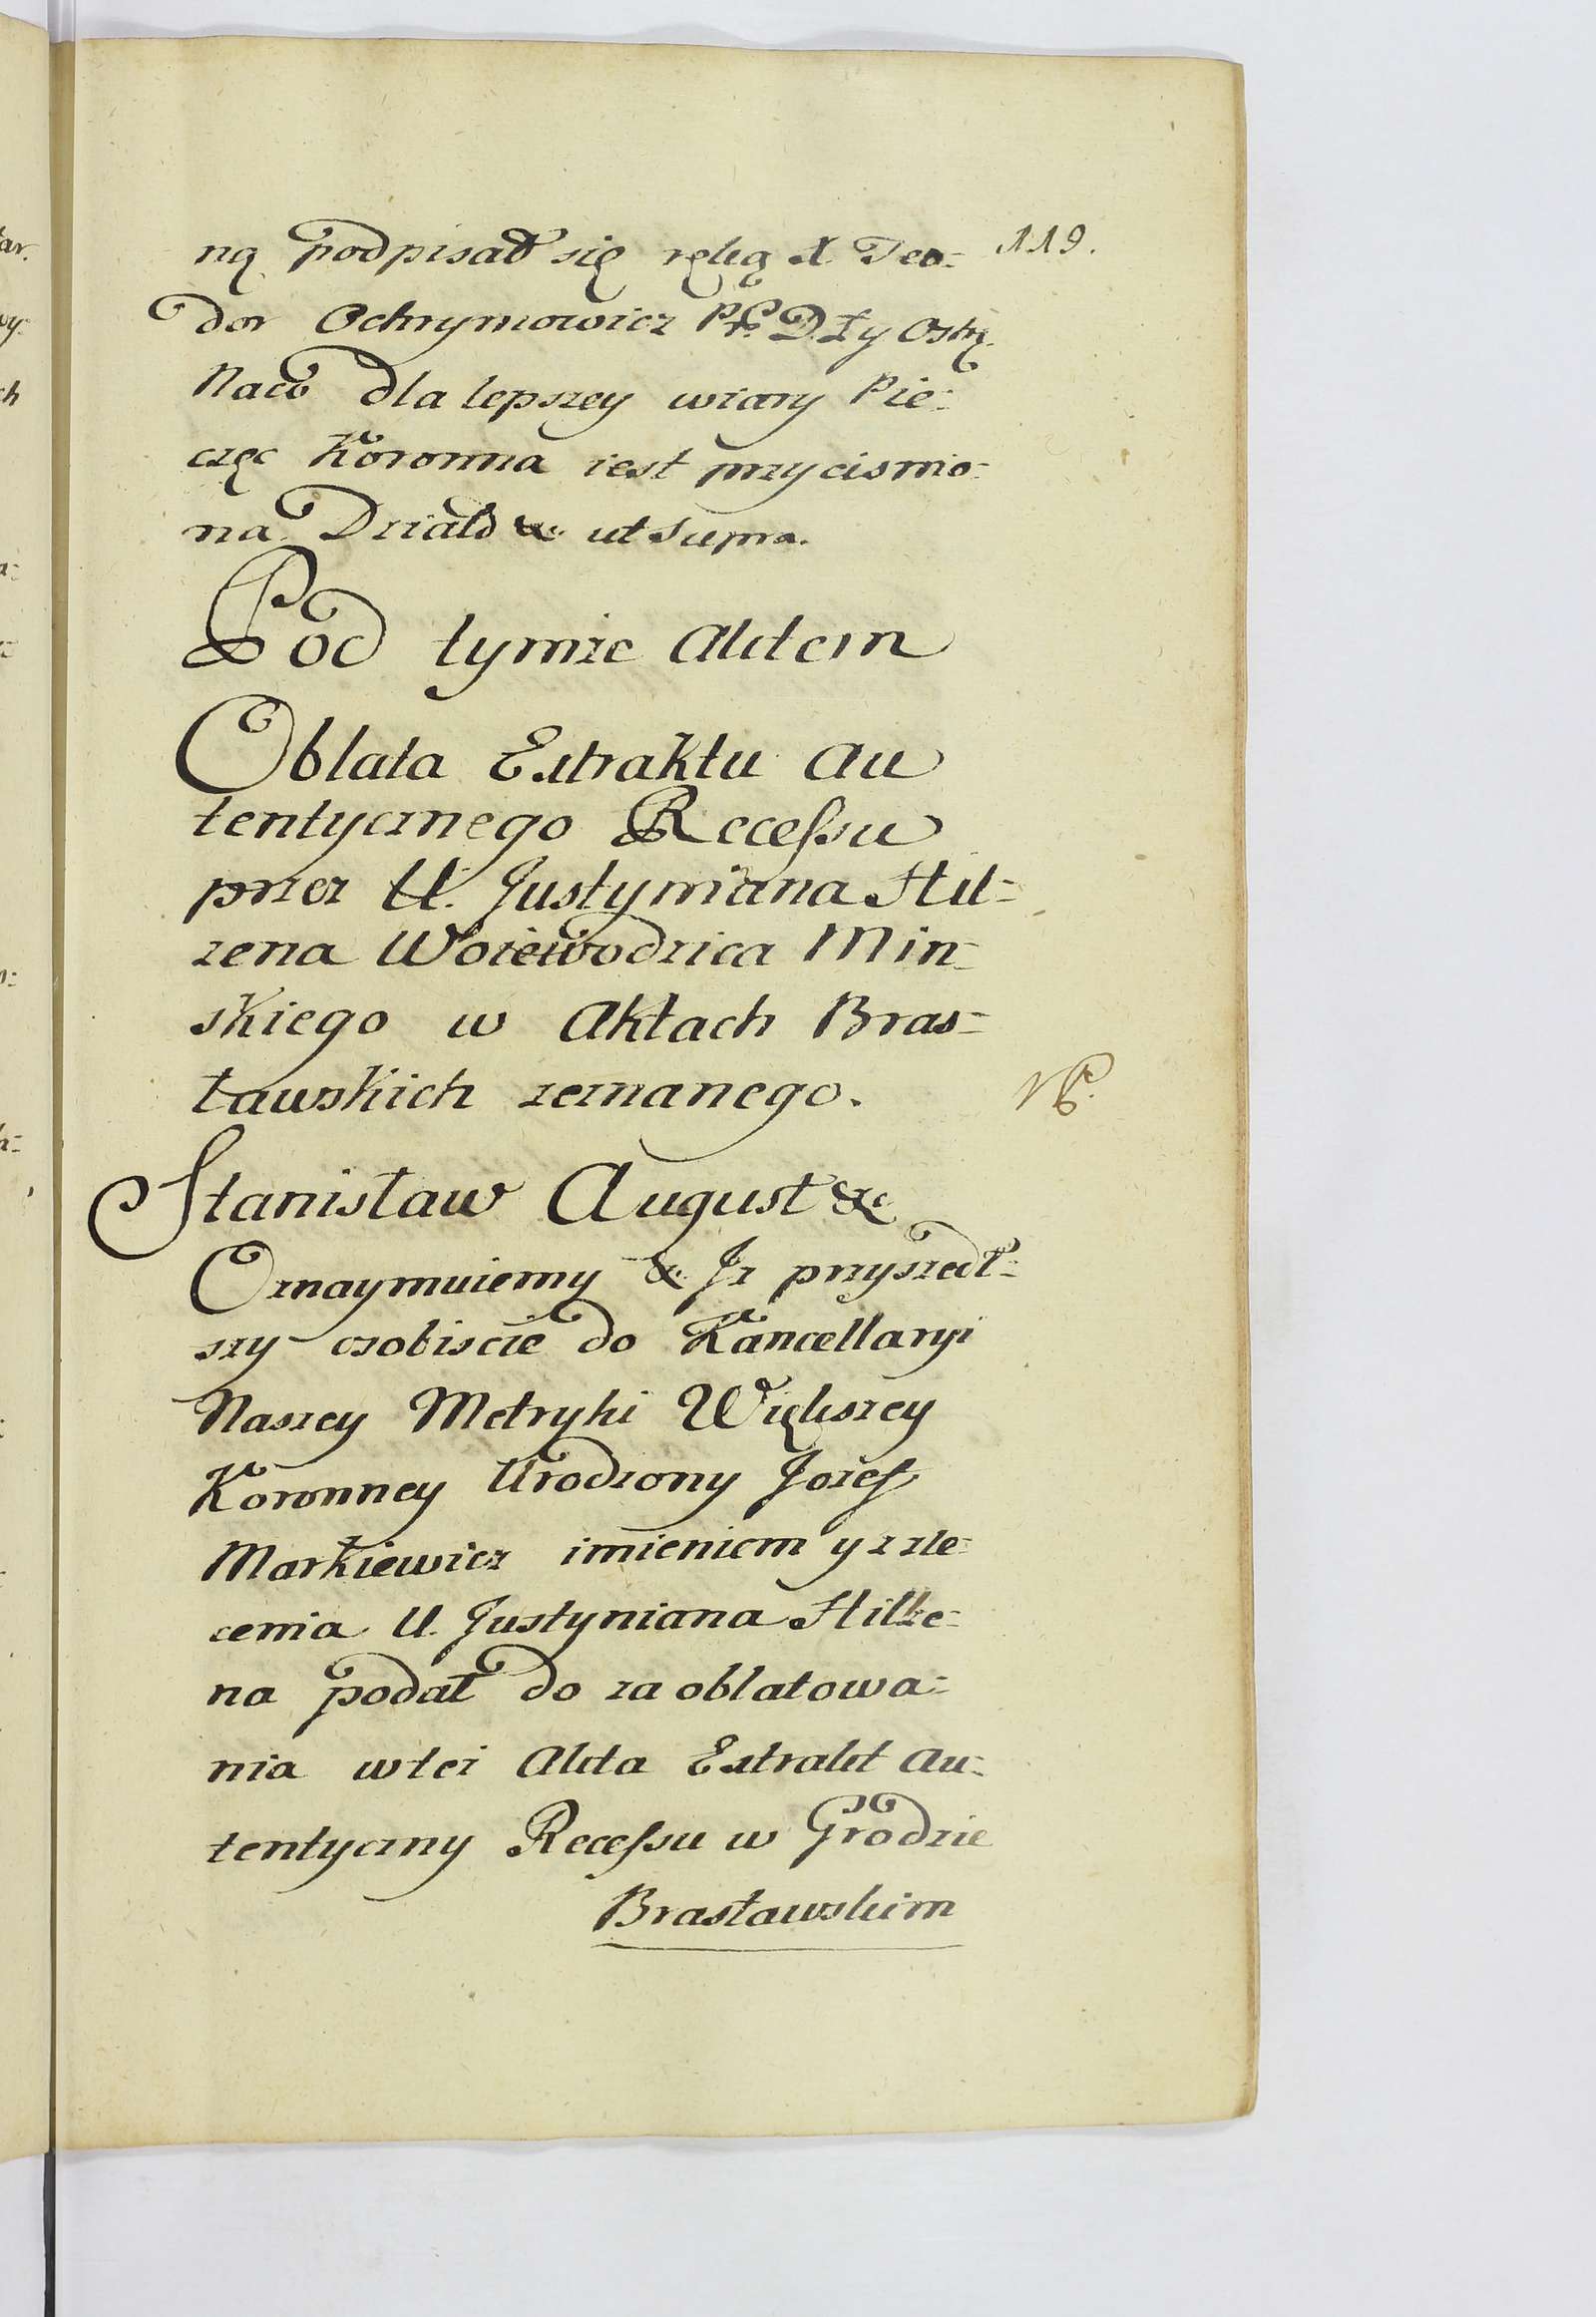 ną podpisał się ręką X. Teo= 119.
dor Ochrymowicz D. Ł y Ostrz.
Naco dla lepszey wiary Pie=
częc Koronna iest przycisnio=
na. Działo &c. ut Supra.
Pod tymże Aktem
Oblata Extraktu Au
tentycznego Recessu
przez U. Justyniana Hil=
zena Woiewodzica Min=
skiego w Aktach Bras=
ławskich zeznanego.
Stanisław August &c
Oznaymuiemy &c. Jz przyszedł=
szy osobiscie do Kancellaryi
Naszey Metryki Większey
Koronney Urodzony Jozef
Markiewicz imieniem y z zle=
cenia U. Justyniana Hilze=
na podał do zaoblatowa=
nia wteż Akta Extrakt Au=
tentyczny Recessu w Grodzie
Brasławskim